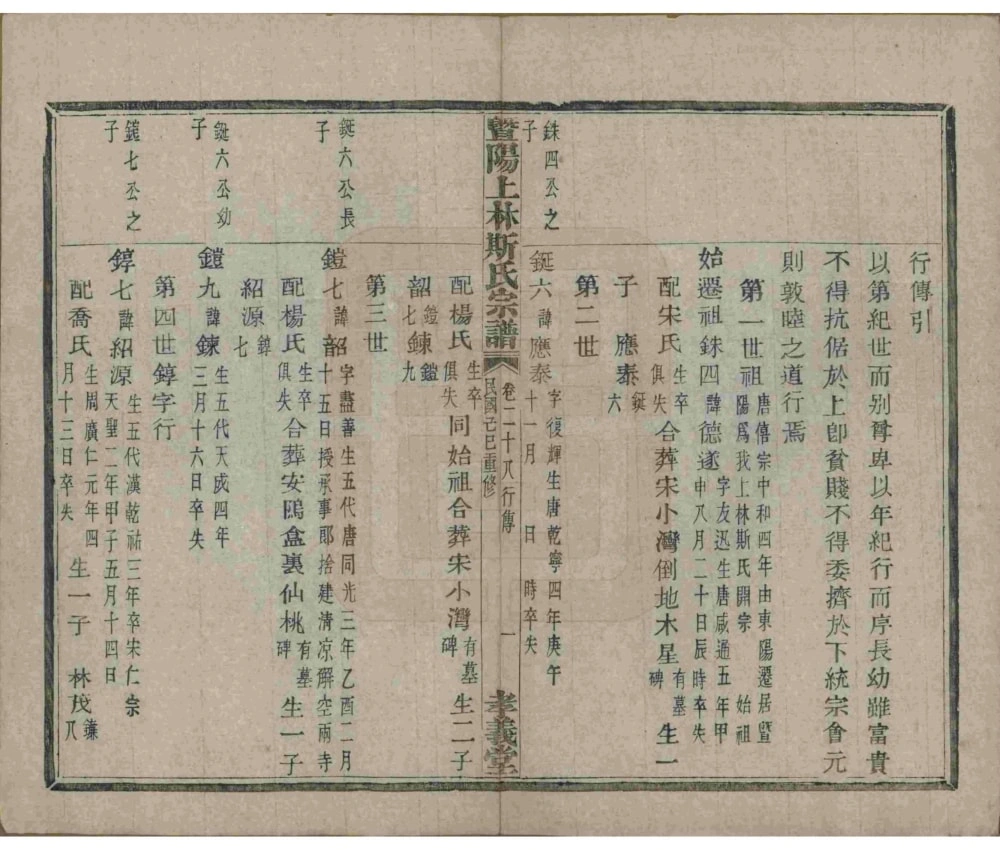 行傳引
以第紀世而別尊卑以年紀行而序長幼雖富貴
不得抗倨於上卽貧賤不得委擠於下統宗會元
則敦睦之道行焉
第一世祖 唐僖宗中和四年由東陽遷居暨
陽爲我上林斯氏開宗 始祖
始遷祖銖四 諱德遂 字友迅生唐咸通五年甲
申八月二十日辰時卒失
配宋氏 生卒
俱失 合葬宋小灣倒地木星 有墓
碑 生一
子 應泰 鋋
六
第二世
銖四公之
子
鋋六 諱應泰 字復輝生唐乾寧四年庚午
十一月 日 時卒失
暨陽上林斯氏宗譜 卷二十八行傳
民國己巳重修 一 孝義堂
配楊氏 生卒
俱失 同始祖合葬宋小灣 有墓
碑 生二子
韶 鎧
七 鍊 鎧
九
第三世
鋋六公長
子
鎧七 諱韶 字盡善生五代唐同光三年乙酉二月
十五日授承事郎捨建清凉解空兩寺
配楊氏 生卒
俱失 合葬安鴎盒裏仙桃 有墓
碑 生一子
紹源 錞
七
鋋六公幼
子
鎧九 諱鍊 生五代天成四年
三月十六日卒失
第四世錞字行
鎧七公之
子
錞七 諱紹源 生五代漢乾祐三年卒宋仁宗
天聖二年甲子五月十四日
配喬氏 生周廣仁元年四
月十三日卒失 生一子 林茂 濂
八